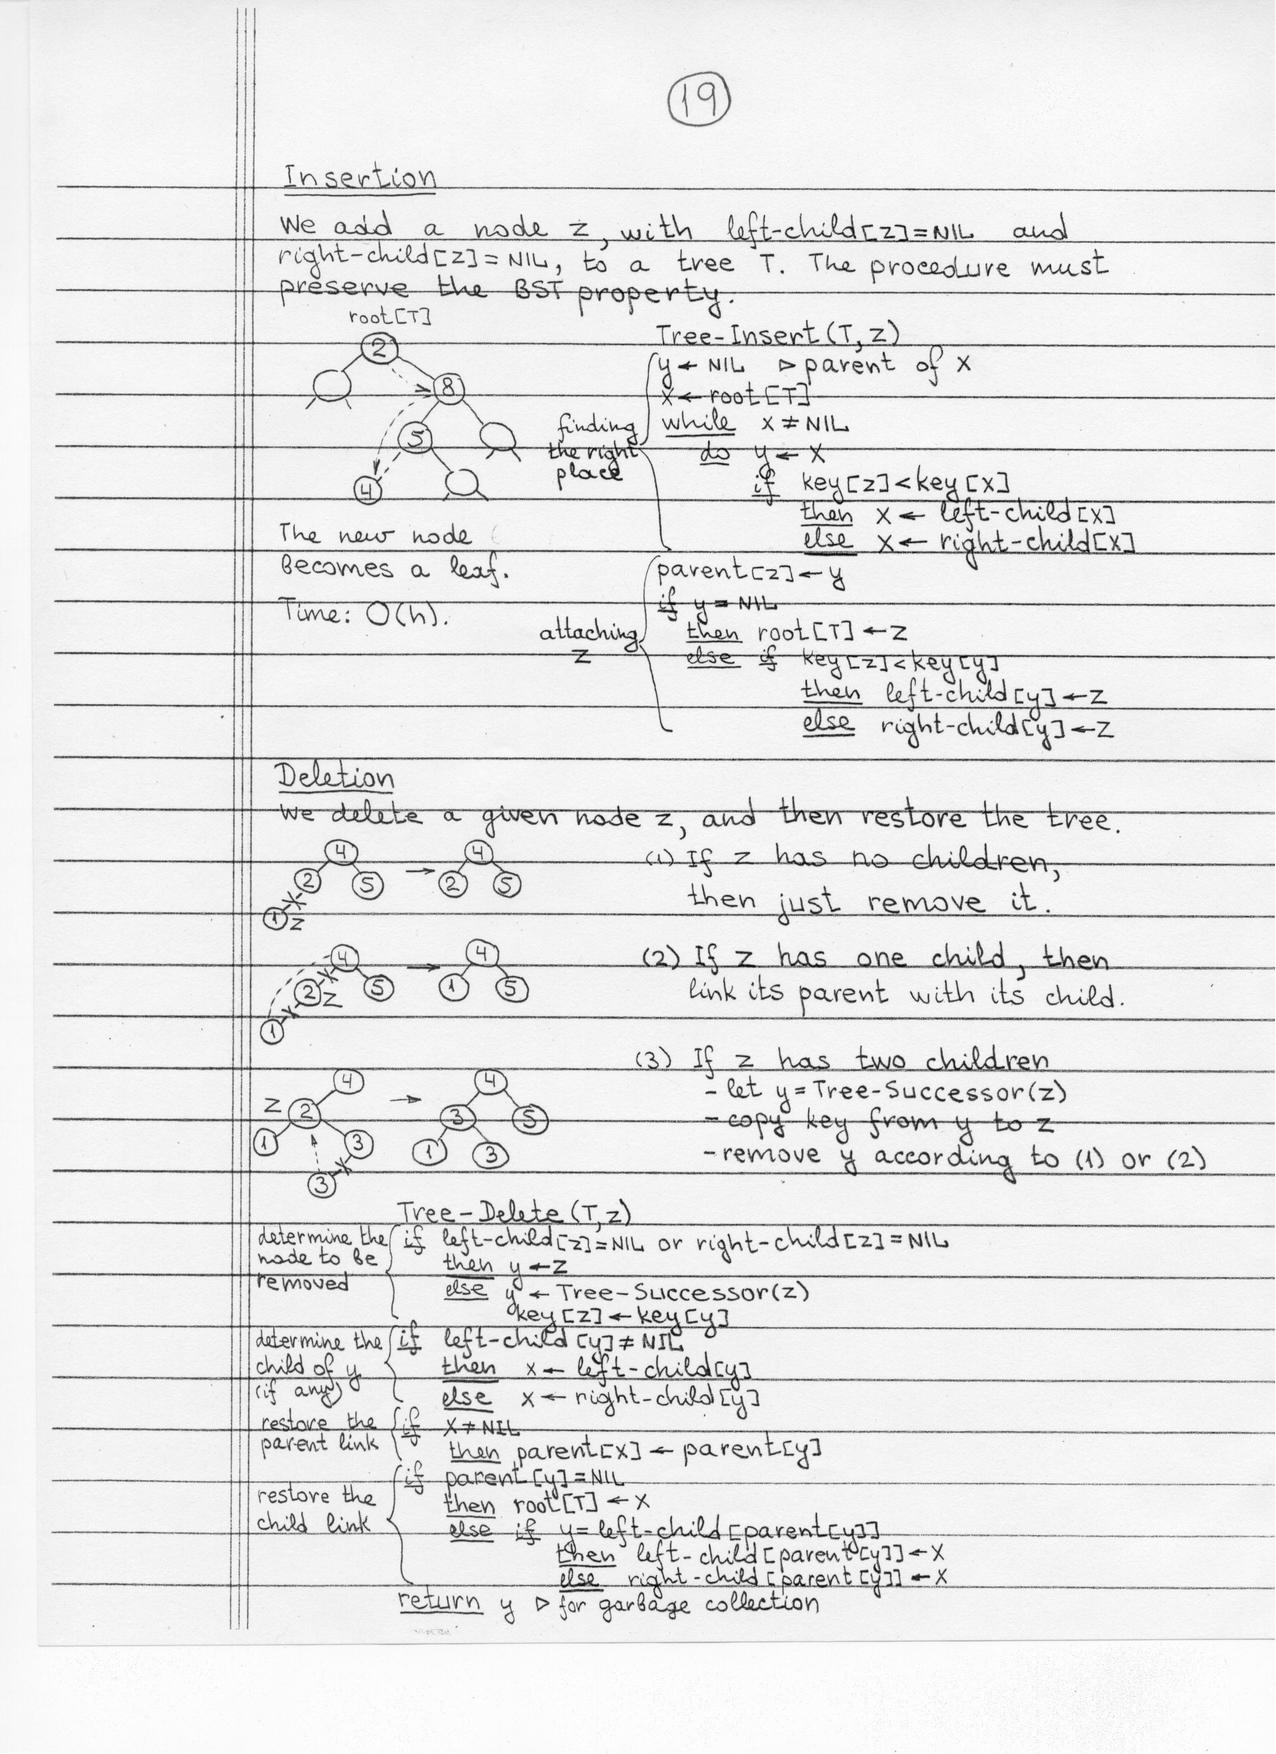 19
Insertion
We add a node z, with left-child[z]=NIL and
right-child[z]=NIL, to a tree T. The procedure must
preserve the BST property.
root[T]
2
8
5
4
The new node
becomes a leaf.
Time: O(h).
Tree-Insert(T,z)
finding
the right
place
y ← NIL ▷ parent of x
x ← root[T]
while x ≠ NIL
do y ← x
if key[z]<key[x]
then x ← left-child[x]
else x ← right-child[x]
attaching
z
parent[z] ← y
if y = NIL
then root[T] ← z
else if key[z]<key[y]
then left-child[y] ← z
else right-child[y] ← z
Deletion
We delete a given node z, and then restore the tree.
4 2 5 1 z → 4 2 5
(1) If z has no children,
then just remove it.
4 2 z 5 1 → 4 1 5
(2) If z has one child, then
link its parent with its child.
4 z 2 1 3 3 → 4 3 5 1 3
(3) If z has two children
- let y = Tree-Successor(z)
- copy key from y to z
- remove y according to (1) or (2)
Tree-Delete(T,z)
determine the
node to be
removed
if left-child[z]=NIL or right-child[z]=NIL
then y ← z
else y ← Tree-Successor(z)
key[z] ← key[y]
determine the
child of y
(if any)
if left-child[y] ≠ NIL
then x ← left-child[y]
else x ← right-child[y]
restore the
parent link
if x ≠ NIL
then parent[x] ← parent[y]
restore the
child link
if parent[y]=NIL
then root[T] ← x
else if y = left-child[parent[y]]
then left-child[parent[y]] ← x
else right-child[parent[y]] ← x
return y ▷ for garbage collection